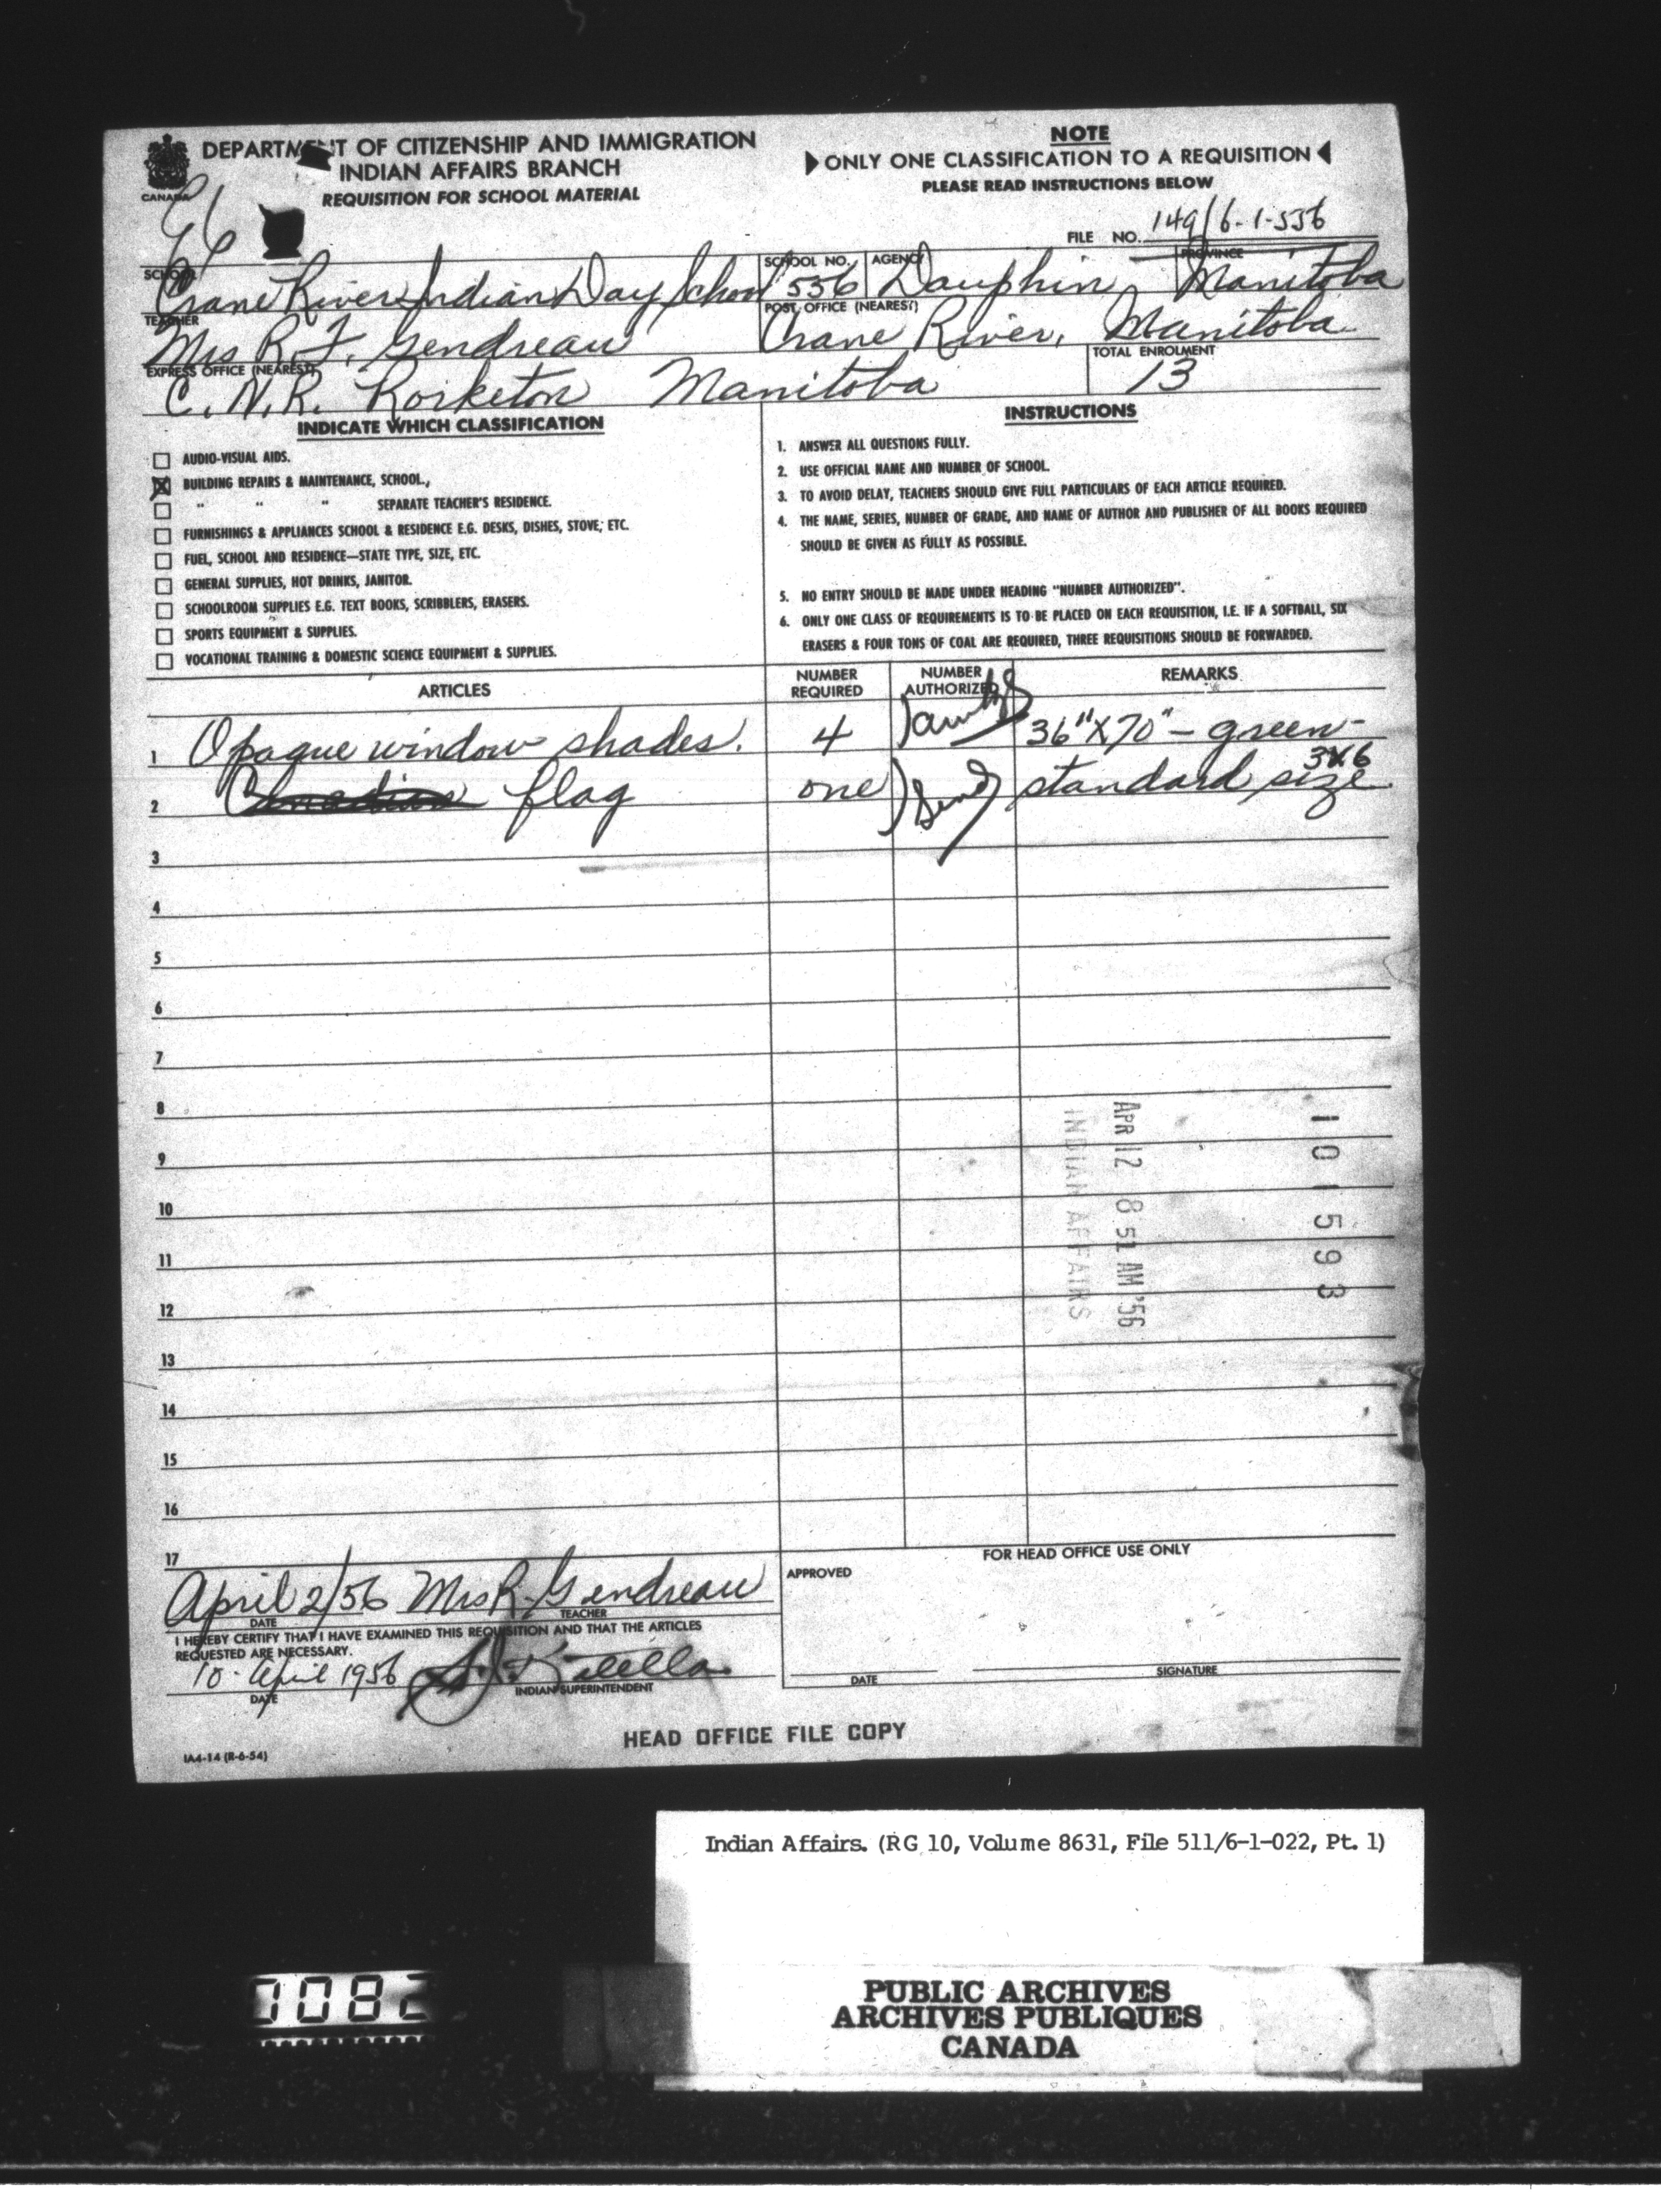 DEPARTMENT OF CITIZENSHIP AND IMMIGRATION
INDIAN AFFAIRS BRANCH
REQUISITION FOR SCHOOL MATERIAL
CANADA
NOTE
ONLY ONE CLASSIFICATION TO A REQUISITION
PLEASE READ INSTRUCTIONS BELOW
FILE NO. 149/6-1-556
SCHOOL
Crane River Indian Day School
SCHOOL NO.
556
AGENCY
Dauphin,
PROVINCE
Manitoba
TEACHER
Mrs R. F. Gendreau
POST OFFICE (NEAREST)
Crane River, Manitoba
EXPRESS OFFICE (NEAREST)
C.N.R. Rorketon Manitoba
TOTAL ENROLMENT
13
INDICATE WHICH CLASSIFICATION
AUDIO-VISUAL AIDS.
BUILDING REPAIRS & MAINTENANCE, SCHOOL.,
" " " SEPARATE TEACHER'S RESIDENCE.
FURNISHINGS & APPLIANCES SCHOOL & RESIDENCE E.G. DESKS, DISHES, STOVE, ETC.
FUEL, SCHOOL AND RESIDENCE—STATE TYPE, SIZE, ETC.
GENERAL SUPPLIES, HOT DRINKS, JANITOR.
SCHOOLROOM SUPPLIES E.G. TEXT BOOKS, SCRIBBLERS, ERASERS.
SPORTS EQUIPMENT & SUPPLIES.
VOCATIONAL TRAINING & DOMESTIC SCIENCE EQUIPMENT & SUPPLIES.
INSTRUCTIONS
1. ANSWER ALL QUESTIONS FULLY.
2. USE OFFICIAL NAME AND NUMBER OF SCHOOL.
3. TO AVOID DELAY, TEACHERS SHOULD GIVE FULL PARTICULARS OF EACH ARTICLE REQUIRED.
4. THE NAME, SERIES, NUMBER OF GRADE, AND NAME OF AUTHOR AND PUBLISHER OF ALL BOOKS REQUIRED
SHOULD BE GIVEN AS FULLY AS POSSIBLE.
5. NO ENTRY SHOULD BE MADE UNDER HEADING "NUMBER AUTHORIZED".
6. ONLY ONE CLASS OF REQUIREMENTS IS TO BE PLACED ON EACH REQUISITION, I.E. IF A SOFTBALL, SIX
ERASERS & FOUR TONS OF COAL ARE REQUIRED, THREE REQUISITIONS SHOULD BE FORWARDED.
ARTICLES
NUMBER REQUIRED
NUMBER AUTHORIZED
REMARKS
1 Opaque window shades. 4 36"X70" - green-
2 Canadian flag one standard size 3x6
3
4
5
6
7
8
9
10
11
12
13
14
15
16
17
APR 12 8 51 AM '56
INDIAN AFFAIRS
101593
April 2/56 Mrs R. Gendreau
DATE TEACHER
I HEREBY CERTIFY THAT I HAVE EXAMINED THIS REQUISITION AND THAT THE ARTICLES
REQUESTED ARE NECESSARY.
10. April 1956
DATE INDIAN SUPERINTENDENT
FOR HEAD OFFICE USE ONLY
APPROVED
DATE SIGNATURE
HEAD OFFICE FILE COPY
IA4-14 (R-6-54)
Indian Affairs. (RG 10, Volume 8631, File 511/6-1-022, Pt. 1)
PUBLIC ARCHIVES
ARCHIVES PUBLIQUES
CANADA